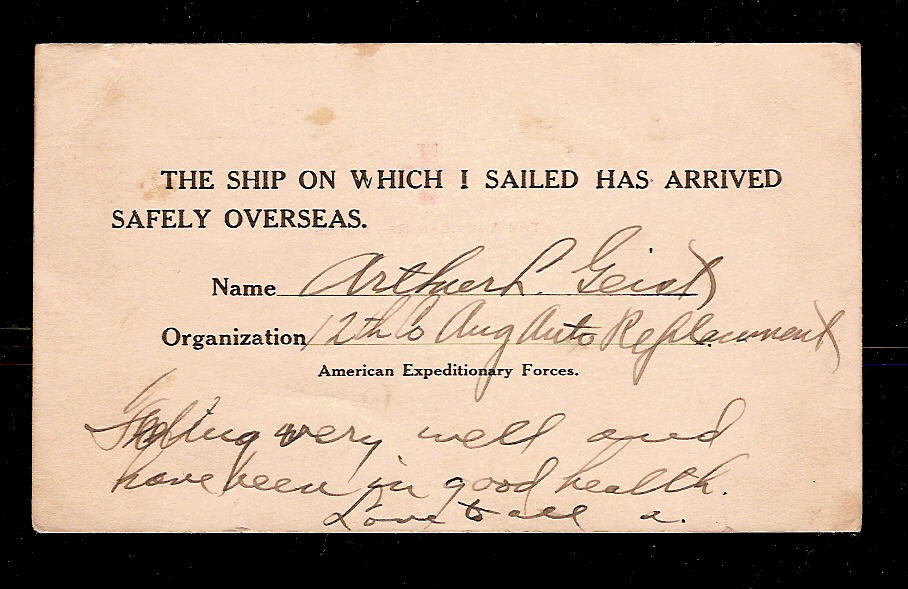 THE SHIP ON WHICH I SAILED HAS ARRIVED
SAFELY OVERSEAS.
Name Arthur L. Geist
Organization 12th Co Aug Auto Replacement
American Expeditionary Forces.
Feeling very well and
have been in good health.
Love to all a.